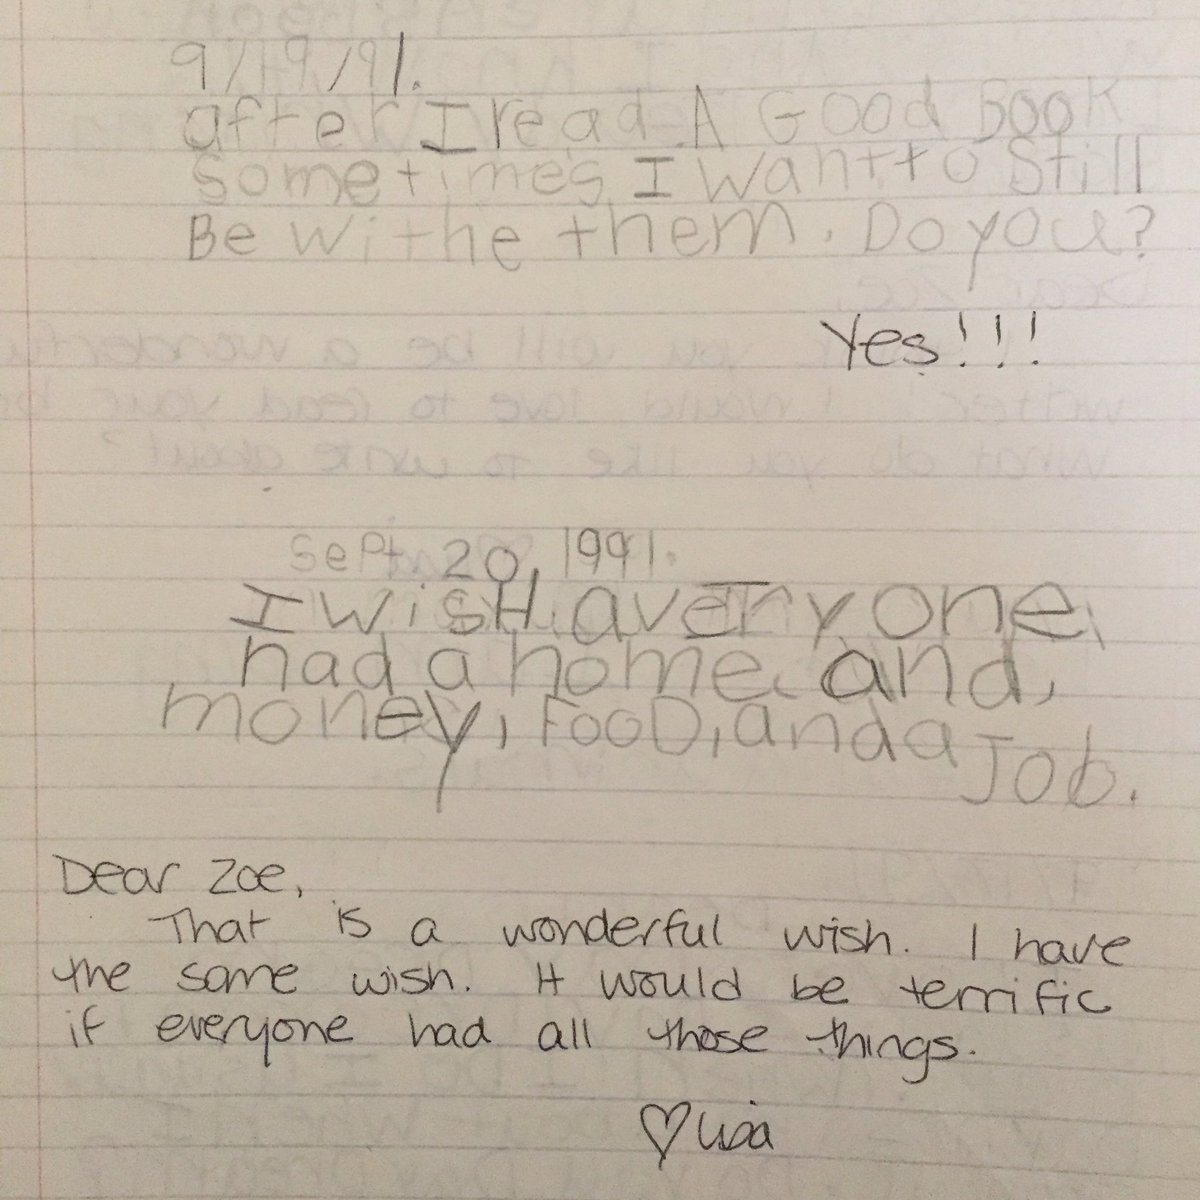 9/19/91.
after I read A Good Book
sometimes I want to Still
Be withe them. Do you?
Yes!!!
Sept. 20, 1991.
I wisH averyone
had a home and,
money, FooD, and a Job.
Dear Zoe,
That is a wonderful wish. I have
the same wish. It would be terrific
if everyone had all those things.
♡ Lisa